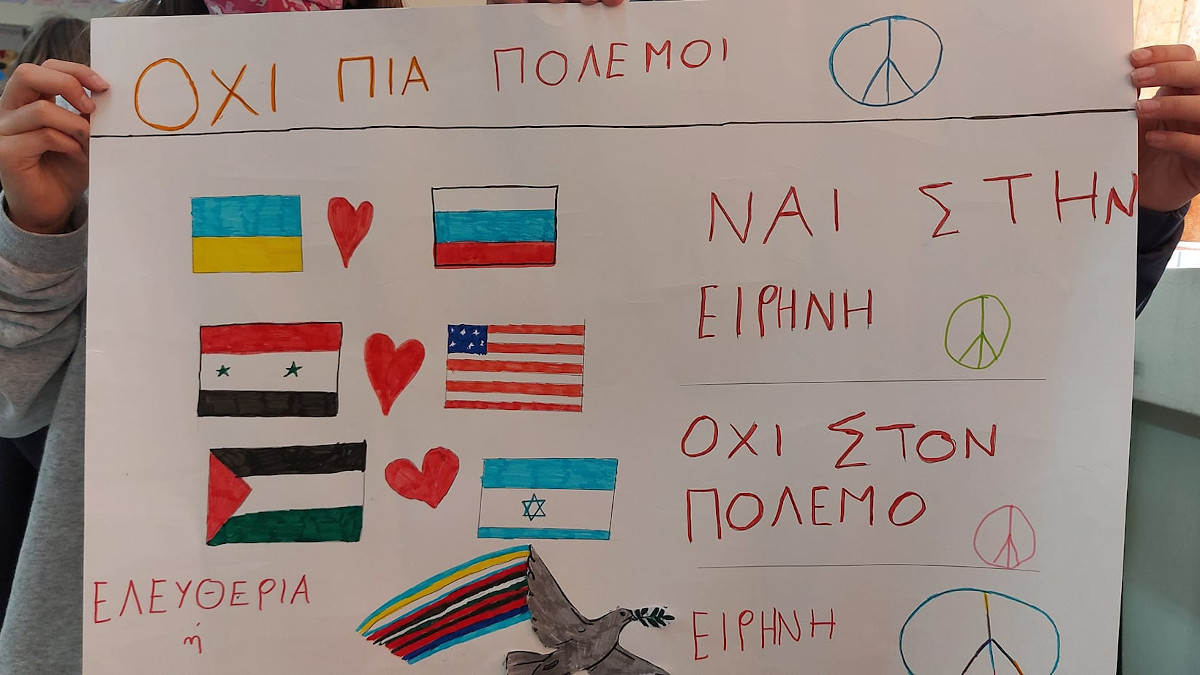 ΟΧΙ ΠΙΑ ΠΟΛΕΜΟΙ
ΝΑΙ ΣΤΗΝ
ΕΙΡΗΝΗ
ΟΧΙ ΣΤΟΝ
ΠΟΛΕΜΟ
ΕΛΕΥΘΕΡΙΑ
ή
ΕΙΡΗΝΗ